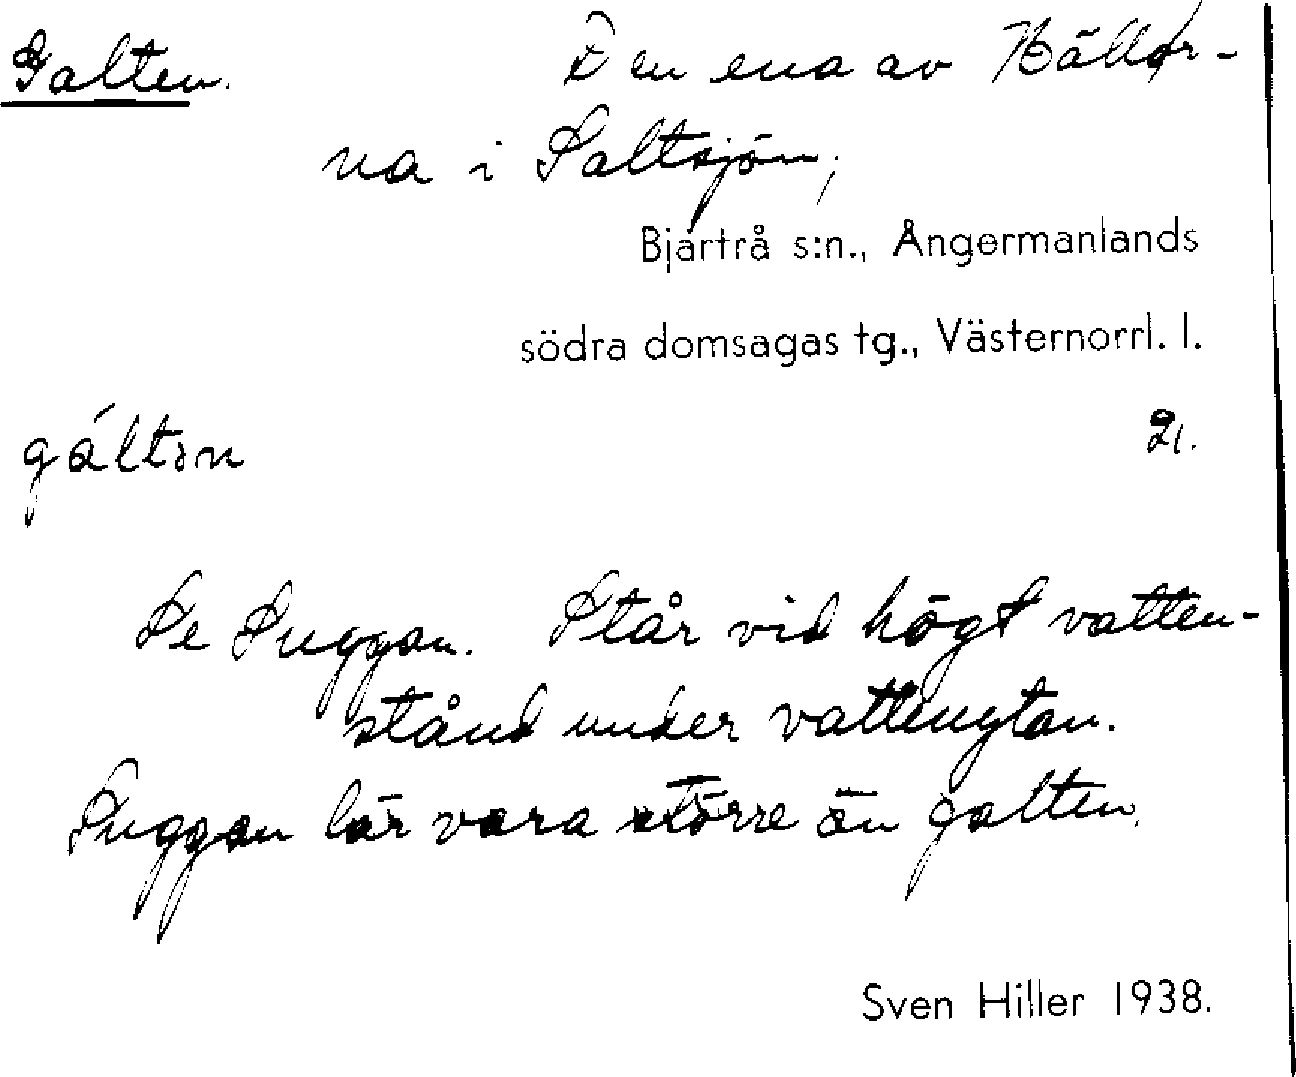 Galten. Den ena av Bållor-
na i Saltsjön;
Bjärtrå s:n., Ångermanlands
södra domsagas tg., Västernorrl. l.
gáltən 21.
Se Suggan. Står vid högt vatten-
stånd under vattenytan.
Suggan lär vara större än galten.
Sven Hiller 1938.